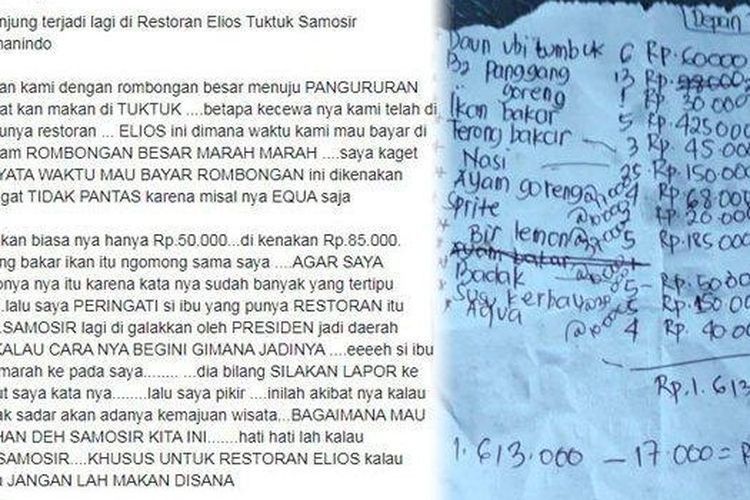 njung terjadi lagi di Restoran Elios Tuktuk Samosir
manindo
an kami dengan rombongan besar menuju PANGURURAN
at kan makan di TUKTUK ....betapa kecewa nya kami telah di
unya restoran ... ELIOS ini dimana waktu kami mau bayar di
am ROMBONGAN BESAR MARAH MARAH ....saya kaget
YATA WAKTU MAU BAYAR ROMBONGAN ini dikenakan
gat TIDAK PANTAS karena misal nya EQUA saja
kan biasa nya hanya Rp.50.000...di kenakan Rp.85.000.
ng bakar ikan itu ngomong sama saya ....AGAR SAYA
onya nya itu karena kata nya sudah banyak yang tertipu
..lalu saya PERINGATI si ibu yang punya RESTORAN itu
.SAMOSIR lagi di galakkan oleh PRESIDEN jadi daerah
KALAU CARA NYA BEGINI GIMANA JADINYA ....eeeeh si ibu
marah ke pada saya........ ...dia bilang SILAKAN LAPOR ke
ut saya kata nya........lalu saya pikir ....inilah akibat nya kalau
ak sadar akan adanya kemajuan wisata...BAGAIMANA MAU
HAN DEH SAMOSIR KITA INI.......hati hati lah kalau
SAMOSIR....KHUSUS UNTUK RESTORAN ELIOS kalau
JANGAN LAH MAKAN DISANA
Depan
Daun ubi tumbuk 6 Rp.60000
B2 panggang 13 Rp.
goreng 1 Rp. 30 000
Ikan bakar 5 Rp. 425000
Terong bakar 3 Rp. 45 000
Nasi 25 Rp.150.000
Ayam goreng 4 Rp. 68.000
Sprite Rp. 20 000
Bir lemon 5 Rp.185 000
Ayam bakar
Badak 5 Rp. 50 000
Susu kerbau 5 Rp. 150 000
Aqua @10000 4 Rp. 40 000
Rp.1.613
1.613.000 - 17.000 = R